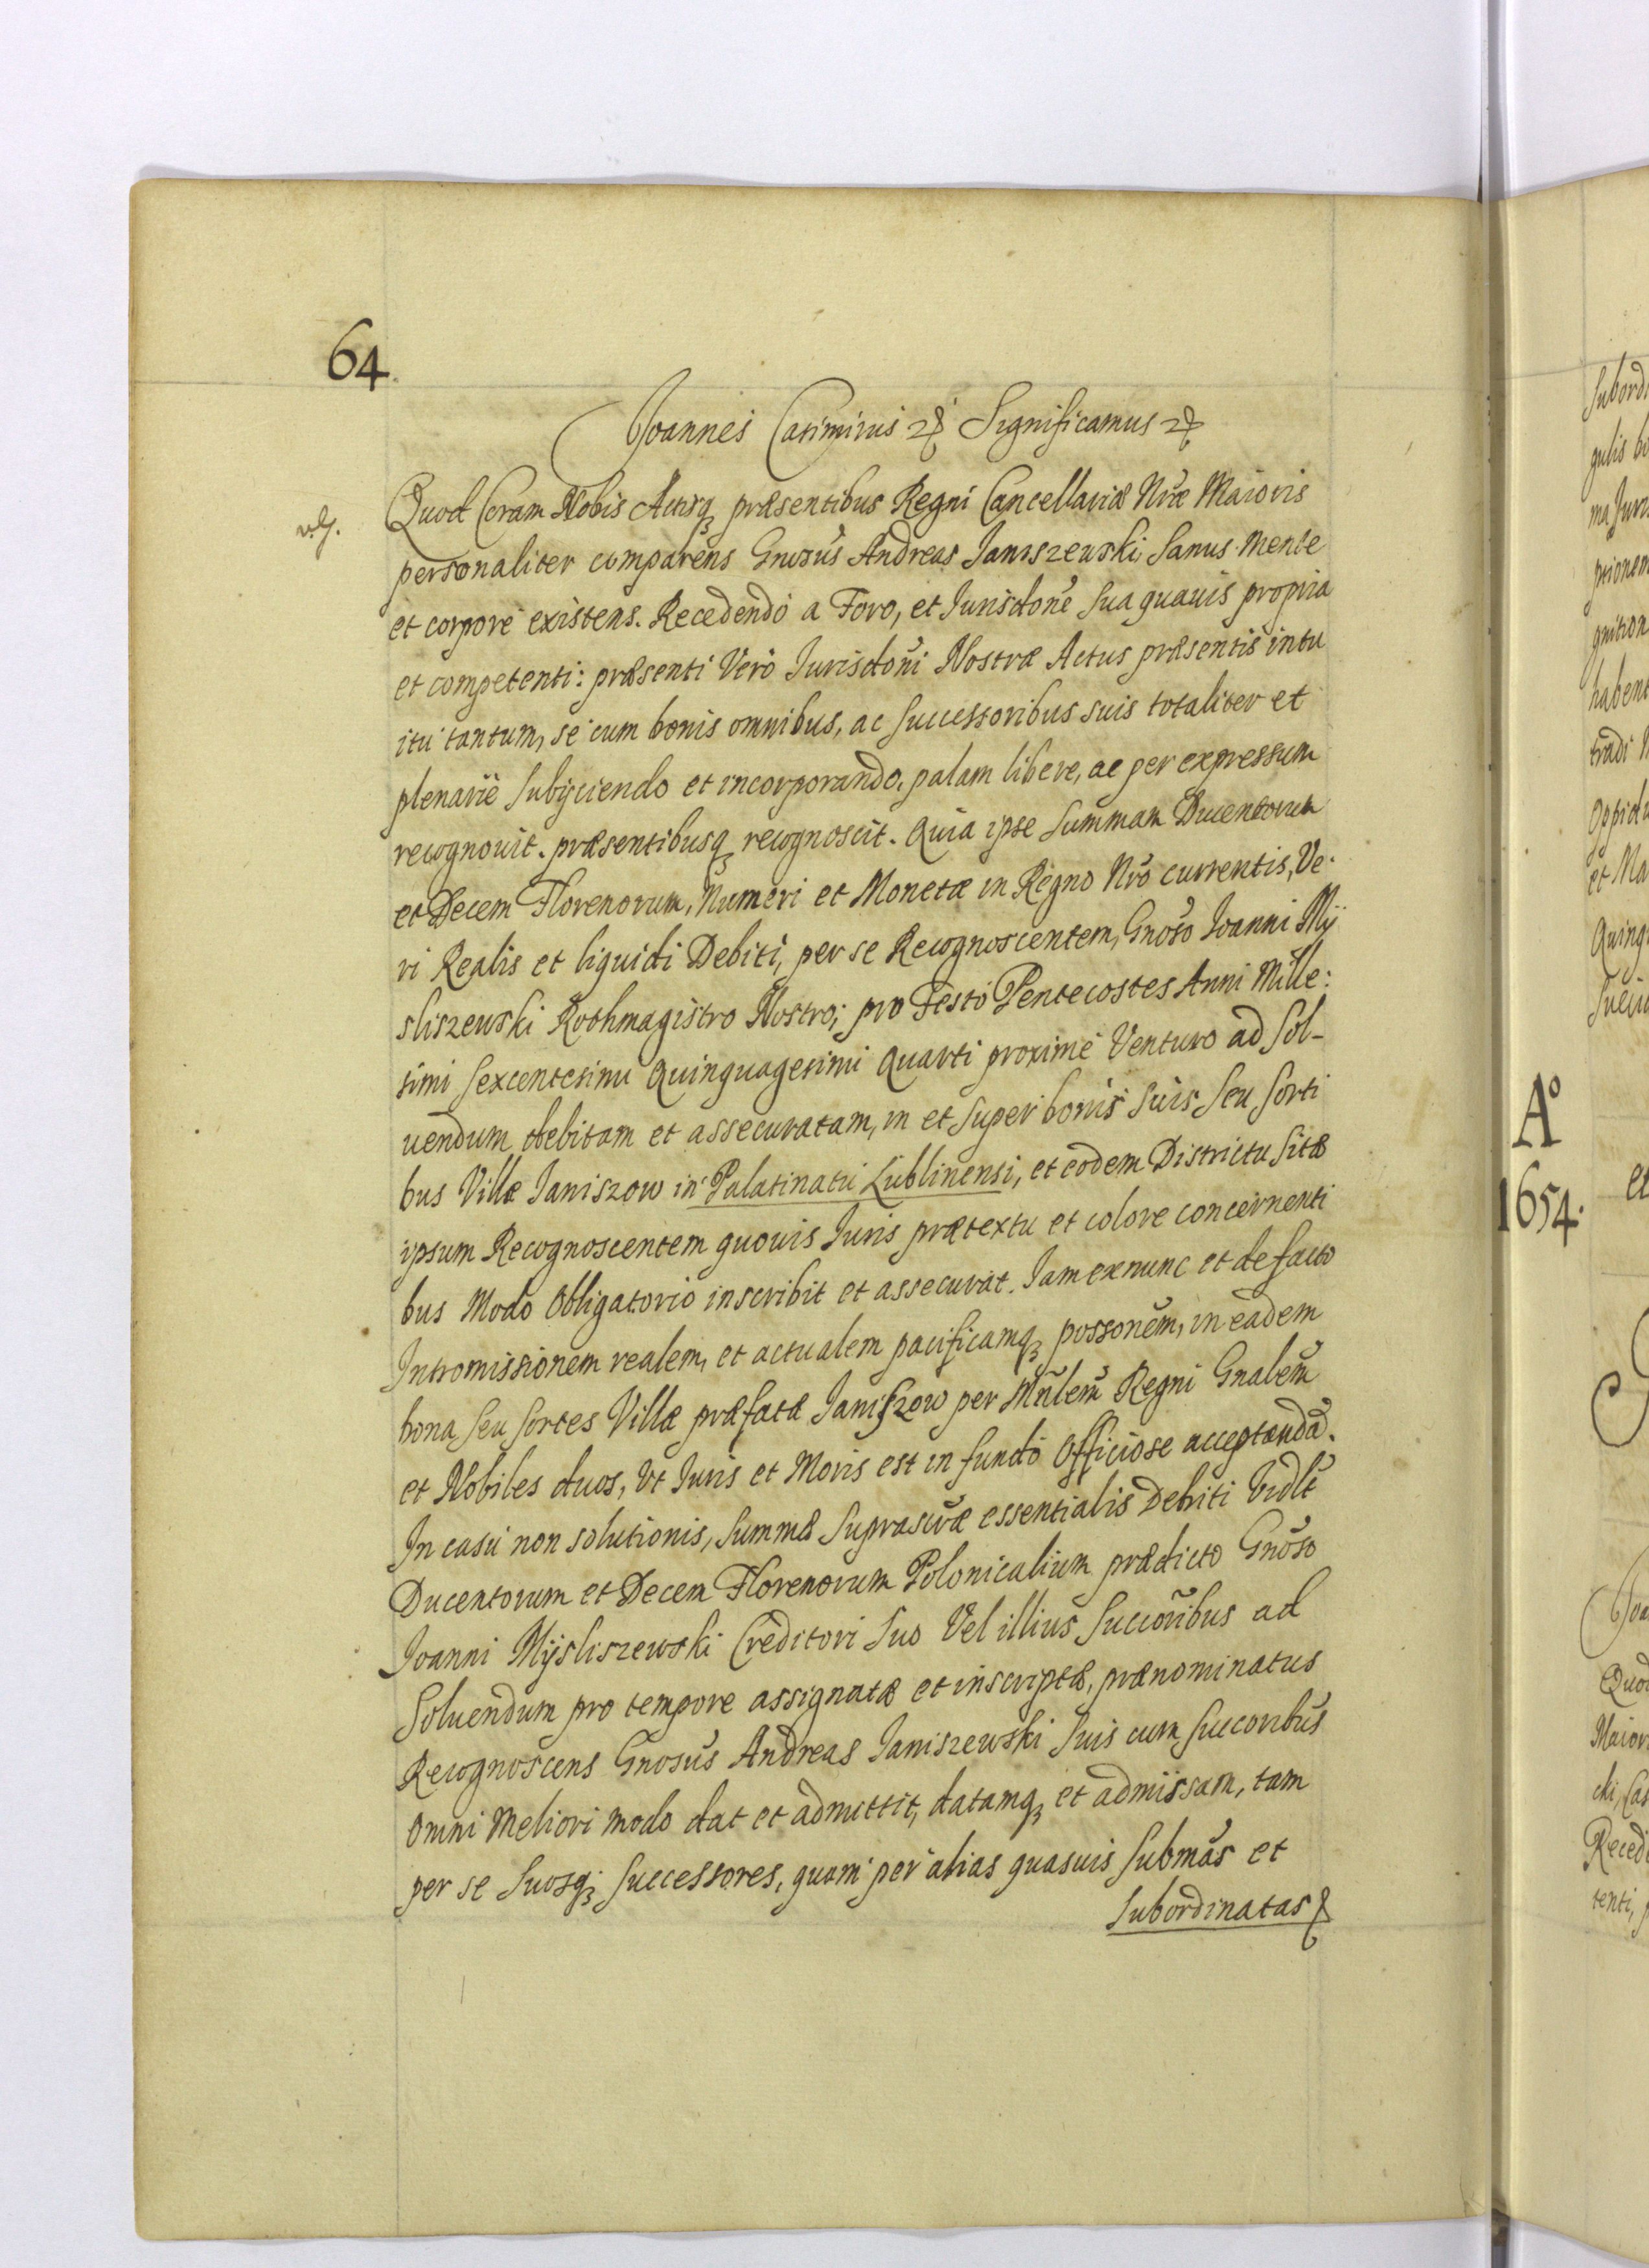 64.
Joannes Casimirus Significamus
Quod Coram Nobis Actisq præsentibus Regni Cancellariæ Nr̃æ Maioris
personaliter comparens Gnosus Andreas Janiszewski Sanus Mente
et corpore existens. Recedendo a Foro, et Jurisdone sua quavis propria
et competenti: præsenti Vero Jurisdoni Nostræ Actus præsentis intu
itu tantum, se cum bonis omnibus, ac successoribus suis totaliter et
plenarie subijciendo et incorporando, palam libere, ac per expressum
recognouit. præsentibusq recognoscit. Quia ipse Summam Ducentorum
et Decem Florenorum, Numeri et Monetæ in Regno Nr̃o currentis, Ve-
ri Realis et liquidi Debiti, per se Recognoscentem, Gnoso Joanni Mÿ
sliszewski Rothmagistro Nostro; pro Festo Pentecostes Anni Mille:
simi Sexcentesimi Quinquagesimi Quarti proxime Venturo ad Sol-
uendum debitam et assecuratam, in et super bonis suis seu sorti
bus Villæ Janiszow in Palatinatu Lublinensi, et eodem Districtu sitæ
ipsum Recognoscentem quouis Juris prætextu et colore concernenti
bus Modo Obligatorio inscribit et assecurat. Jam exnunc et de facto
Intromissionem realem, et actualem pacificamq possonem, in eadem
bona seu sortes Villæ præfatæ Janiszow per Mnlem Regni Gnalem
et Nobiles duos, Vt Juris et Moris est in fundo Officiose acceptandã.
In casu non solutionis, summæ Suprascræ essentialis Debiti Vidlt
Ducentorum et Decem Florenorum Polonicalium prædicto Gnoso
Joanni Mÿsliszewski Creditori suo Vel illius Succoribus ad
Soluendum pro tempore assignatæ et inscriptæ, prænominatus
Recognoscens Gnosus Andreas Janiszewski suis cum succoribus
omni Meliori modo dat et admittit, datamq et admissam, tam
per se suosq successores, quam per alias quasuis submas et
Subordinatas
Aº
1654.